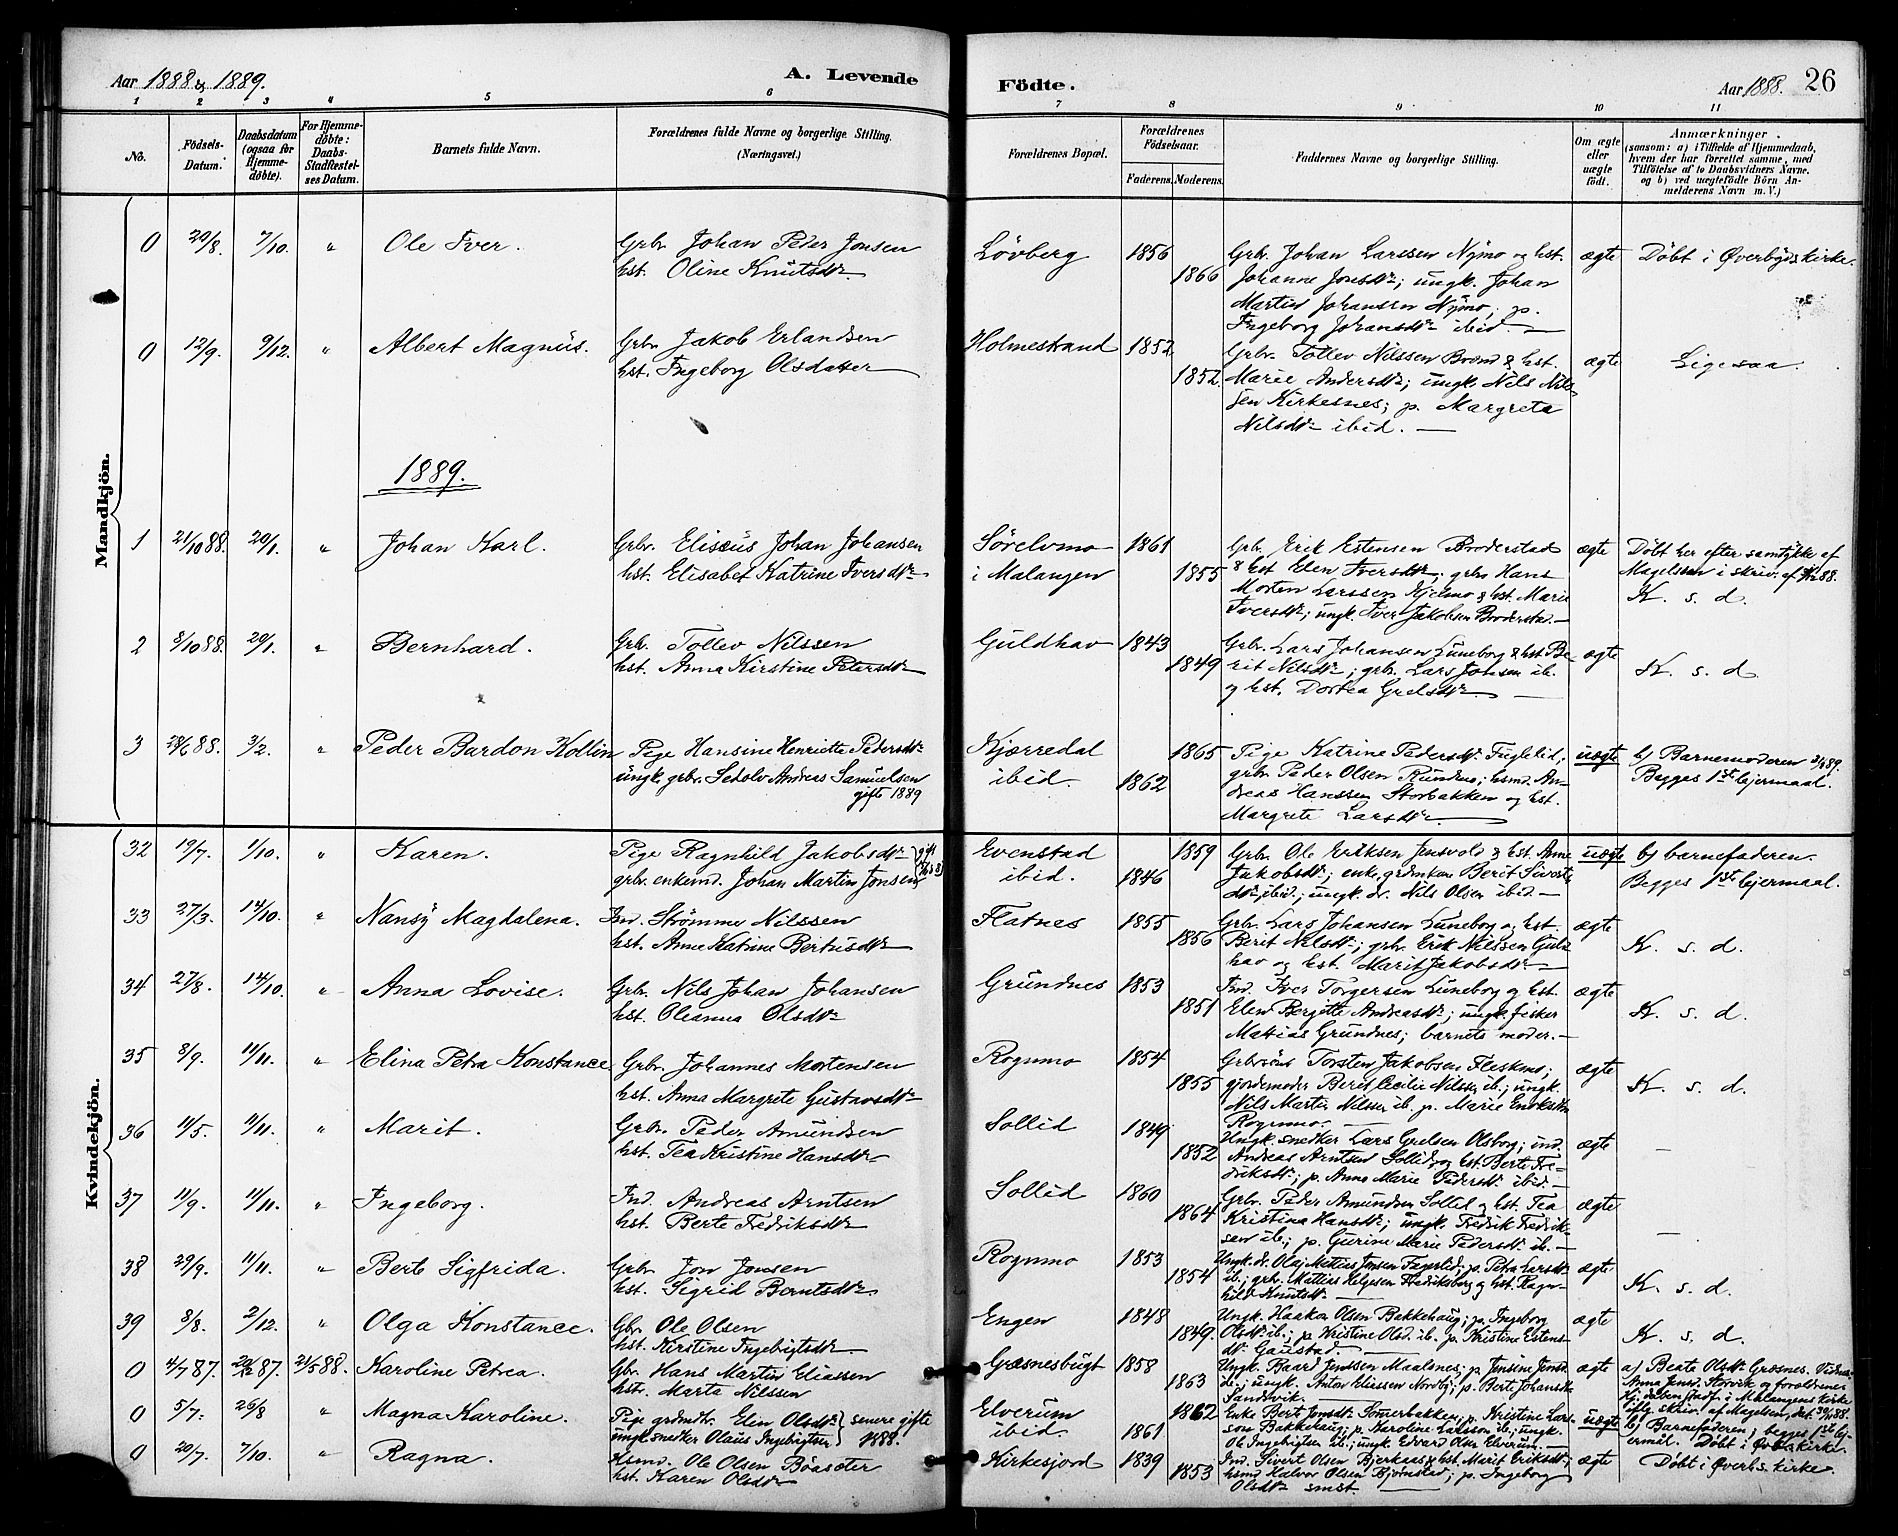 Aar 1888 & 1889.
A. Levende
Födte.
Aar 1888. 26
1 2 3 4 5 6 7 8 9 10 11
No.
Födsels-
Datum.
Daabsdatum
(ogsaa for
Hjemme-
döbte).
For Hjemme-
döbte:
Daabs-
Stadfæstel-
ses Datum.
Barnets fulde Navn.
Forældrenes fulde Navne og borgerlige Stilling.
(Næringsvei.)
Forældrenes Bopæl.
Forældrenes
Födselsaar.
Faderens. Moderens.
Faddernes Navne og borgerlige Stilling.
Om ægte
eller
uægte
födt.
Anmærkninger.
(saasom: a) i Tilfælde af Hjemmedaab,
hvem der har forrettet samme, med
Tilföielse af to Daabsvidners Navne,
og b) ved uægtefödte Börn An-
melderens Navn m. V.)
Mandkjön.
0 20/8. 7/10. " Ole Iver. Grbr. Johan Peder Jonsen
hst. Oline Knutsdtr
Løvberg 1856 1866
Grbr. Johan Larssen Nymo og hst.
Johanne Jonsdtr; ungk. Johan
Martin Johansen Nymo, p.
Ingeborg Johansdtr ibid
ægte Døbt i Øverbyds kirke.
0 12/9. 9/12. " Albert Magnus. Grbr. Jakob Erlandsen
hst. Ingeborg Olsdatter
Holmestrand 1852 1852.
Grbr. Tollev Nilssen Brænd & hst.
Marie Andersdtr; ungk. Nils Nils
sen Kirkesnes; p. Margreta
Nilsdtr ibid.
ægte Ligesaa.
1889.
1 21/10 88. 20/1. " Johan Karl. Grbr. Elisæus Johan Johansen
hst. Elisabet Katrine Iversdtr
Sørelvmo
i Malangen
1861 1855
Grb. Erik Estensen Broderstad
& hst Elen Iversdtr; grbr Hans
Morten Larssen Kjelmo & hst. Marie
Iversdtr; ungk. Iver Jakobsen Broderstad.
ægte Døbt her efter samtykke af
Magelssen i skriv. af 88.
K. s. d.
2 8/10 88. 20/1. " Bernhard. Grbr. Tollev Nilssen
hst. Anna Kirstine Petersdtr
Guldhav 1843 1849
Grbr. Lars Johansen Luneborg & hst. Be-
rit Nilsdtr; grbr. Lars Johsen ib.
og hst. Dortea Grelsdtr.
ægte K. s. d
3 28/6 88. 3/2. " Peder Bardon Kollin Pige Hansine Henriette Pedersdtr
ungk. grbr. Sedolv Andreas Samuelsen
gifte 1889
Kjærredal
ibid.
1865 1862
Pige Katrine Pedersdtr Fuglelid;
grbr. Peder Olsen Rundmo; hsmd. An-
dreas Hanssen Storbakken og hst.
Margrete Larsdtr.
uægte b) Barnemoderen 3/2 89.
Begges 1ste lejermaal.
Kvindekjön.
32 19/7. 1/10. " Karen. Pige Ragnhild Jakobsdtr
grbr. enkemd. Johan Martin Jonsen
Evenstad
ibid.
1859 1846
Grbr. Ole Eriksen Jensvold & hst. Anne
Jakobsdtr; enke, grdmkone Berit Siverts
dtr ibid.; ungk. dr. Nils Olsen ibid.
uægte b) barnefaderen.
Begges 1ste lejermaal.
33 27/3. 14/10. " Nansy Magdalena. Ind. Strømme Nilssen
hst. Anne Katrine Bertusdtr
Flatnes 1855 1856
Grbr. Lars Johansen Luneborg og hst.
Berit Nilsdtr; grbr. Erik Nilssen Guld
hav og hst. Marit Jakobsdtr
ægte K. s. d.
34 27/8. 14/10. " Anna Lovise. Grbr. Nils Johan Johansen
hst. Oleanna Olsdtr
Grundnes 1853 1851
Ind. Iver Torgersen Luneborg og hst.
Elen Bergitte Andreasdtr; ungk. fisker
Mattias Grundnes; barnets moder.
ægte K. s. d.
35 8/9. 11/11. " Elina Petra Konstance Grbr. Johannes Mortensen
hst. Anna Margrete Gustavsdtr
Rognmo 1854 1855
Grbrsøn Torsten Jakobsen Fleskmo;
gjordemoder Berit Cecilie Nilssen ib.; ungk.
Nils Martin Nilssen ib. p. Marie Enoksdtr
Rognmo.
ægte K. s. d.
36 11/5. 11/11. " Marit. Grbr. Peder Amundsen
hst. Tea Kristine Hansdtr
Sollid 1849 1852
Ungk. snedker Lars Grelsen Olsborg; ind.
Andreas Arntsen Sollid og hst. Berte Fre-
driksdtr; p. Anne Marie Pedersdtr ibid.
ægte –
37 11/9. 11/11. " Ingeborg. Ind. Andreas Arntsen
hst. Berte Fredriksdtr
Sollid 1860 1864
Grbr. Peder Amundsen Sollid og hst. Tea
Kristina Hansdtr; ungk. Fredrik Fredrik-
sen ib.; p. Gurine Marie Pedersdtr ib.
ægte –
38 29/9. 11/11. " Berte Sigfrida. Grbr. Jon Jonsen
hst. Sigrid Berntsdtr.
Rognmo 1853 1854
Ungk. dr. Olaj Matias Jonsen Fagerlid; p. Petra Larsdtr
ib.; grbr. Mattias Helgesen Fredriksberg og hst. Ragn-
hild Knutsdtr
ægte K. s. d.
39 8/8. 2/12. " Olga Konstance. Gbr. Ole Olsen
hst. Kirstine Ingebrigtsdtr
Engen 1848 1849.
Ungk. Haakon Olsen Bakkehaug; p. Ingeborg
Olsdtr ib.; p. Kristine Olsd. ib. p. Kristine Estens-
dtr Gaustad.
ægte K. s. d.
0 4/7 87. 87. 21/5 88. Karoline Petrea. Gbr. Hans Martin Eliassen
hst. Marta Nilssen
Græsnesbugt 1858 1863
Ungk. Baard Jenssen Maalsnes; p. Jensine Jens
dr.; ungk. Anton Eliassen Nordby; p. Berte Johansdtr
Sandsvik.
ægte a) Beate Olsdtr Græsnes. Vidner
Anna Jensd. Storvik og forældrene
Hj. daaben stadf. i Malangens kirke
iflg. skriv. af Magelssen, dat. 88.
0 5/7. 26/8 " Magna Karoline. Pige grdmdtr. Elen Olsdtr
ungk. snedker Olaus Ingebrigtsen
senere gifte
1888.
Elverum
ibid.
1862 1861
Enke Berit Jonsdtr Sømerbakken, p. Kristine Lars-
son Bakkehaug; p. Karoline Larsson ib.; ungk.
Ole Ingebrigtsen ib.; ungk. Edvard Olsen Elverum.
uægte b) Barnefaderen; begges 1ste lej-
ermål. Døbt i Øverb. kirke.
0 20/7. 7/10. " Ragna. Hsmd. Ole Olsen Bøasæter
hst. Karen Olsdtr
Kirkesjord 1839 1853
Ind. Sivert Olsen Bjerkaas & hst. Marit Eriksdtr;
hsmd Halvor Olsen Bjørnstad; p. Ingeborg
Olsdtr smst.
ægte Døbt i Øverbs. kirke.